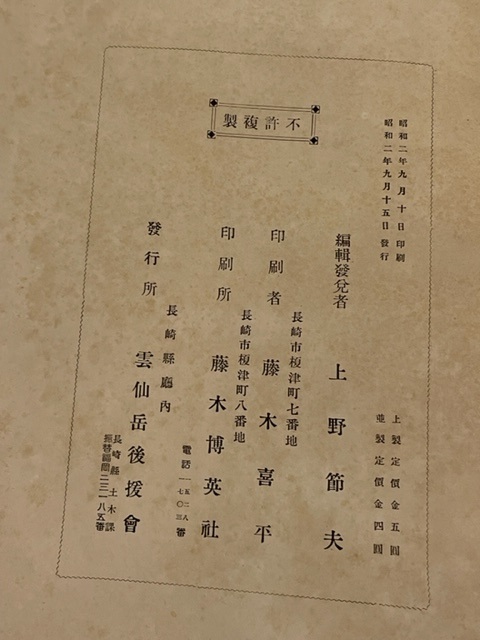 不許複製
昭和二年九月十日印刷
昭和二年九月十五日發行
上製定價金五圓
並製定價金四圓
編輯發兌者 上野節夫
長崎市榎津町七番地
印刷者 藤木喜平
長崎市榎津町八番地
印刷所 藤木博英社
電話
一五二八
一七〇三
番
長崎縣廳內
發行所 雲仙岳後援會
長崎縣土木課
振替福岡二三一八五番